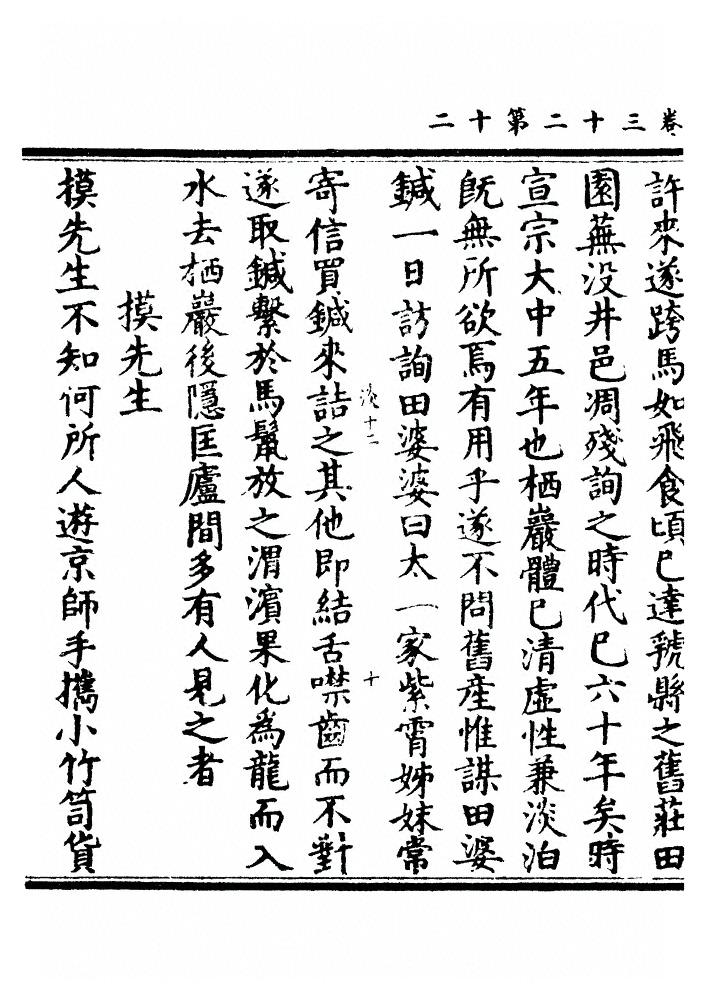 卷三十二第十二
許來遂跨馬如飛食頃已達虢縣之舊莊田
園蕪没井邑凋殘詢之時代已六十年矣時
宣宗大中五年也栖巖體已清虛性兼淡泊
既無所欲焉有用乎遂不問舊產惟謀田婆
鍼一日訪詢田婆婆曰太一家紫霄姊妹常
淡十二
十
寄信買鍼來詰之其他即結舌噤齒而不對
遂取鍼繫於馬鬣放之渭濱果化為龍而入
水去栖巖後隱匡廬間多有人見之者
摸先生
摸先生不知何所人遊京師手攜小竹笥貨